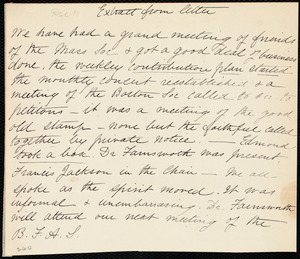 Extract from letter
We have had a grand meeting of friends
of the Mass Soc & got a good deal of business
done. the weekly contribution plan started
the monthly concert reestablished & a
meeting of the Boston Soc called to see to
petitions — it was a meeting of the good
old stamp — none but the faithful called
together by private notice — Edmond
took a box. Dr Farnsworth was present
Francis Jackson in the Chair — We all
spoke as the spirit moved. It was
informal & unembarrassing. Dr. Farnsworth
will attend our next meeting of the
B. F. A. S.